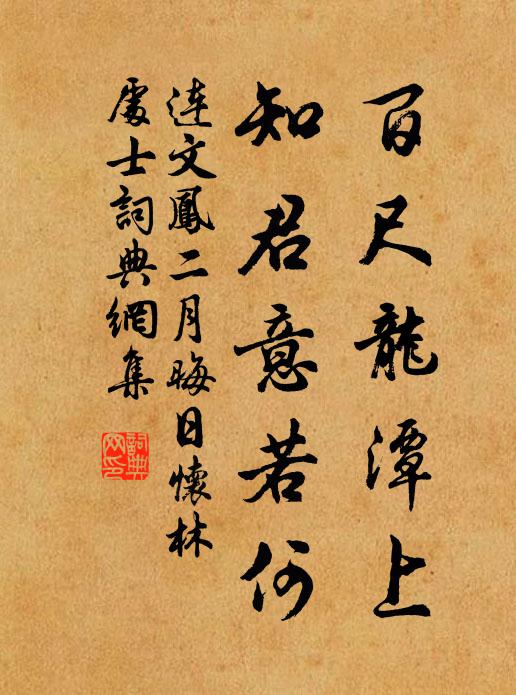 百尺龍潭上
知君意若何
連文鳳二月晦日懷林
處士詞典網集
詞典
网印